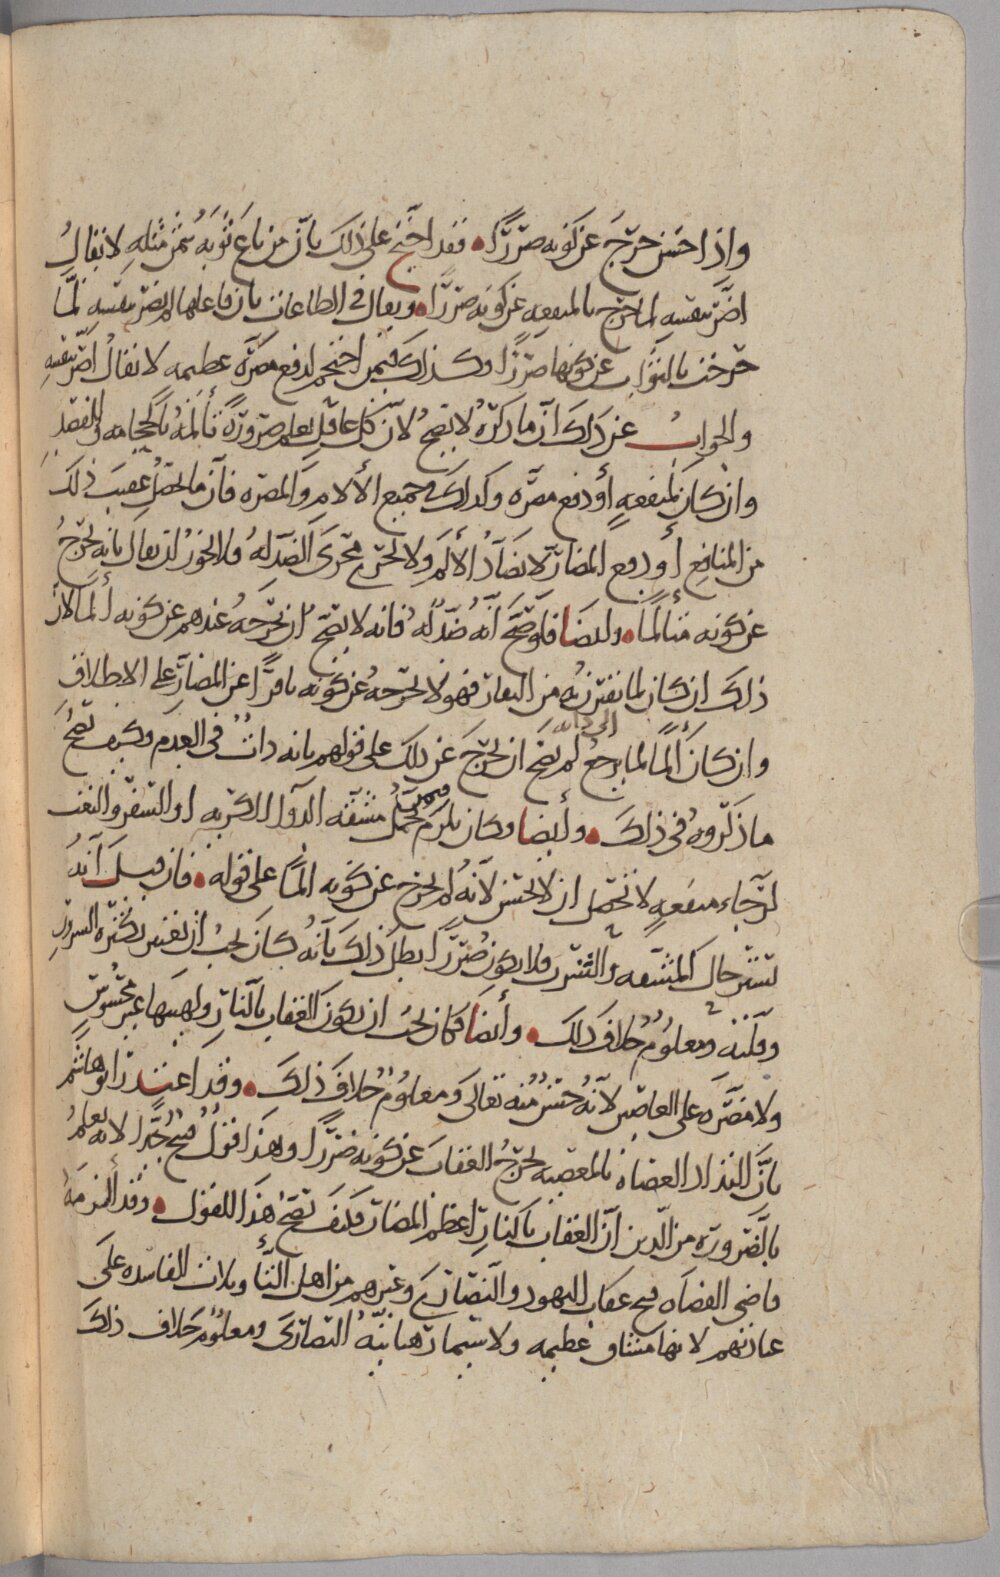 واذا حسن خرج عن كونه ضررًا • فقد احتج على ذلك بأن من باع ثوبه بثمن مثله لا يقال
اضر بنفسه لما خرج بالمنفعه عن كونه ضررًا • ويقال في الطاعات بان فاعلها لم يضر بنفسه لما
خرجت بالثواب عن كونها ضررًا وكذلك فيمن احتجم لدفع مضرة عظيمه لا يقال اضر بنفسه
والجواب عن ذلك أن ما ذكره لا يصح لأن كل عاقل يعلم ضرورة تألمه بالحجامه والفصد
وان كان لمنفعهٍ أو دفع مضره وكذلك جميع الألام والمضره فان ما يحصل عقيب ذلك
من المنافع أو دفع المضار لا يضاد الألم ولا يجري مجرى الضد له فلا يجوز ان يقال بانه يخرج
عن كونه متألمًا • وايضا فلو صح أنه ضد له فانه لا يصح ان يخرجه عندهم عن كونه ألما لان
ذلك ان كان لما يقترن به من النفار فهو لا يخرجه عن كونه نافرًا عن المضار على الاطلاق
وان كان ألمًا لما يرجع الى ذاته لم يصح ان يخرج عن ذلك على قولهم بانه ذات في العدم وكيف يصح
ما ذكروه في ذلك • وأيضا وكان يلزم فيمن تحمل مشقه الدواء الكريه او السفر والتعب
لرجاء منفعهٍ لا تحصل ان لا يحسن لأنه لم يخرج عن كونه المًا على قوله • فان قيل أنه
يستر حال المشقه والسرور فلا يكون ضررًا بطل ذلك بأنه كان يجب ان يعتبر بكثره السرور
وقلته ومعلوم خلاف ذلك • وأيضا فكان يجب ان يكون العقاب بالنار ولهيبها غير محسوس
ولا مضره على العاصين لأنه حسن منه تعالى ومعلوم خلاف ذلك • وقد اعتذر ابو هاشم
بان التذاذ العصاه بالمعصيه يخرج العقاب عن كونه ضررًا وهذا قول قبيح جدًا لانه يعلم
بالضروره من الدين أن العقاب بالنار اعظم المضار فكيف يصح هذا القول • وقد ألزمه
قاضي القضاه قبح عقاب اليهود والنصارى وغيرهم من اهل التأويلات الفاسده على
عبادتهم لانها مشاق عظيمه ولا سيما رهبانيه النصارى ومعلوم خلاف ذلك